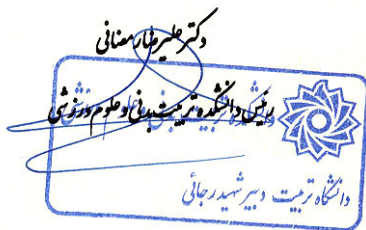 دکتر علیرضا رمضانی
رئیس دانشکده تربیت بدنی و علوم ورزشی
دانشگاه تربیت دبیر شهید رجائی